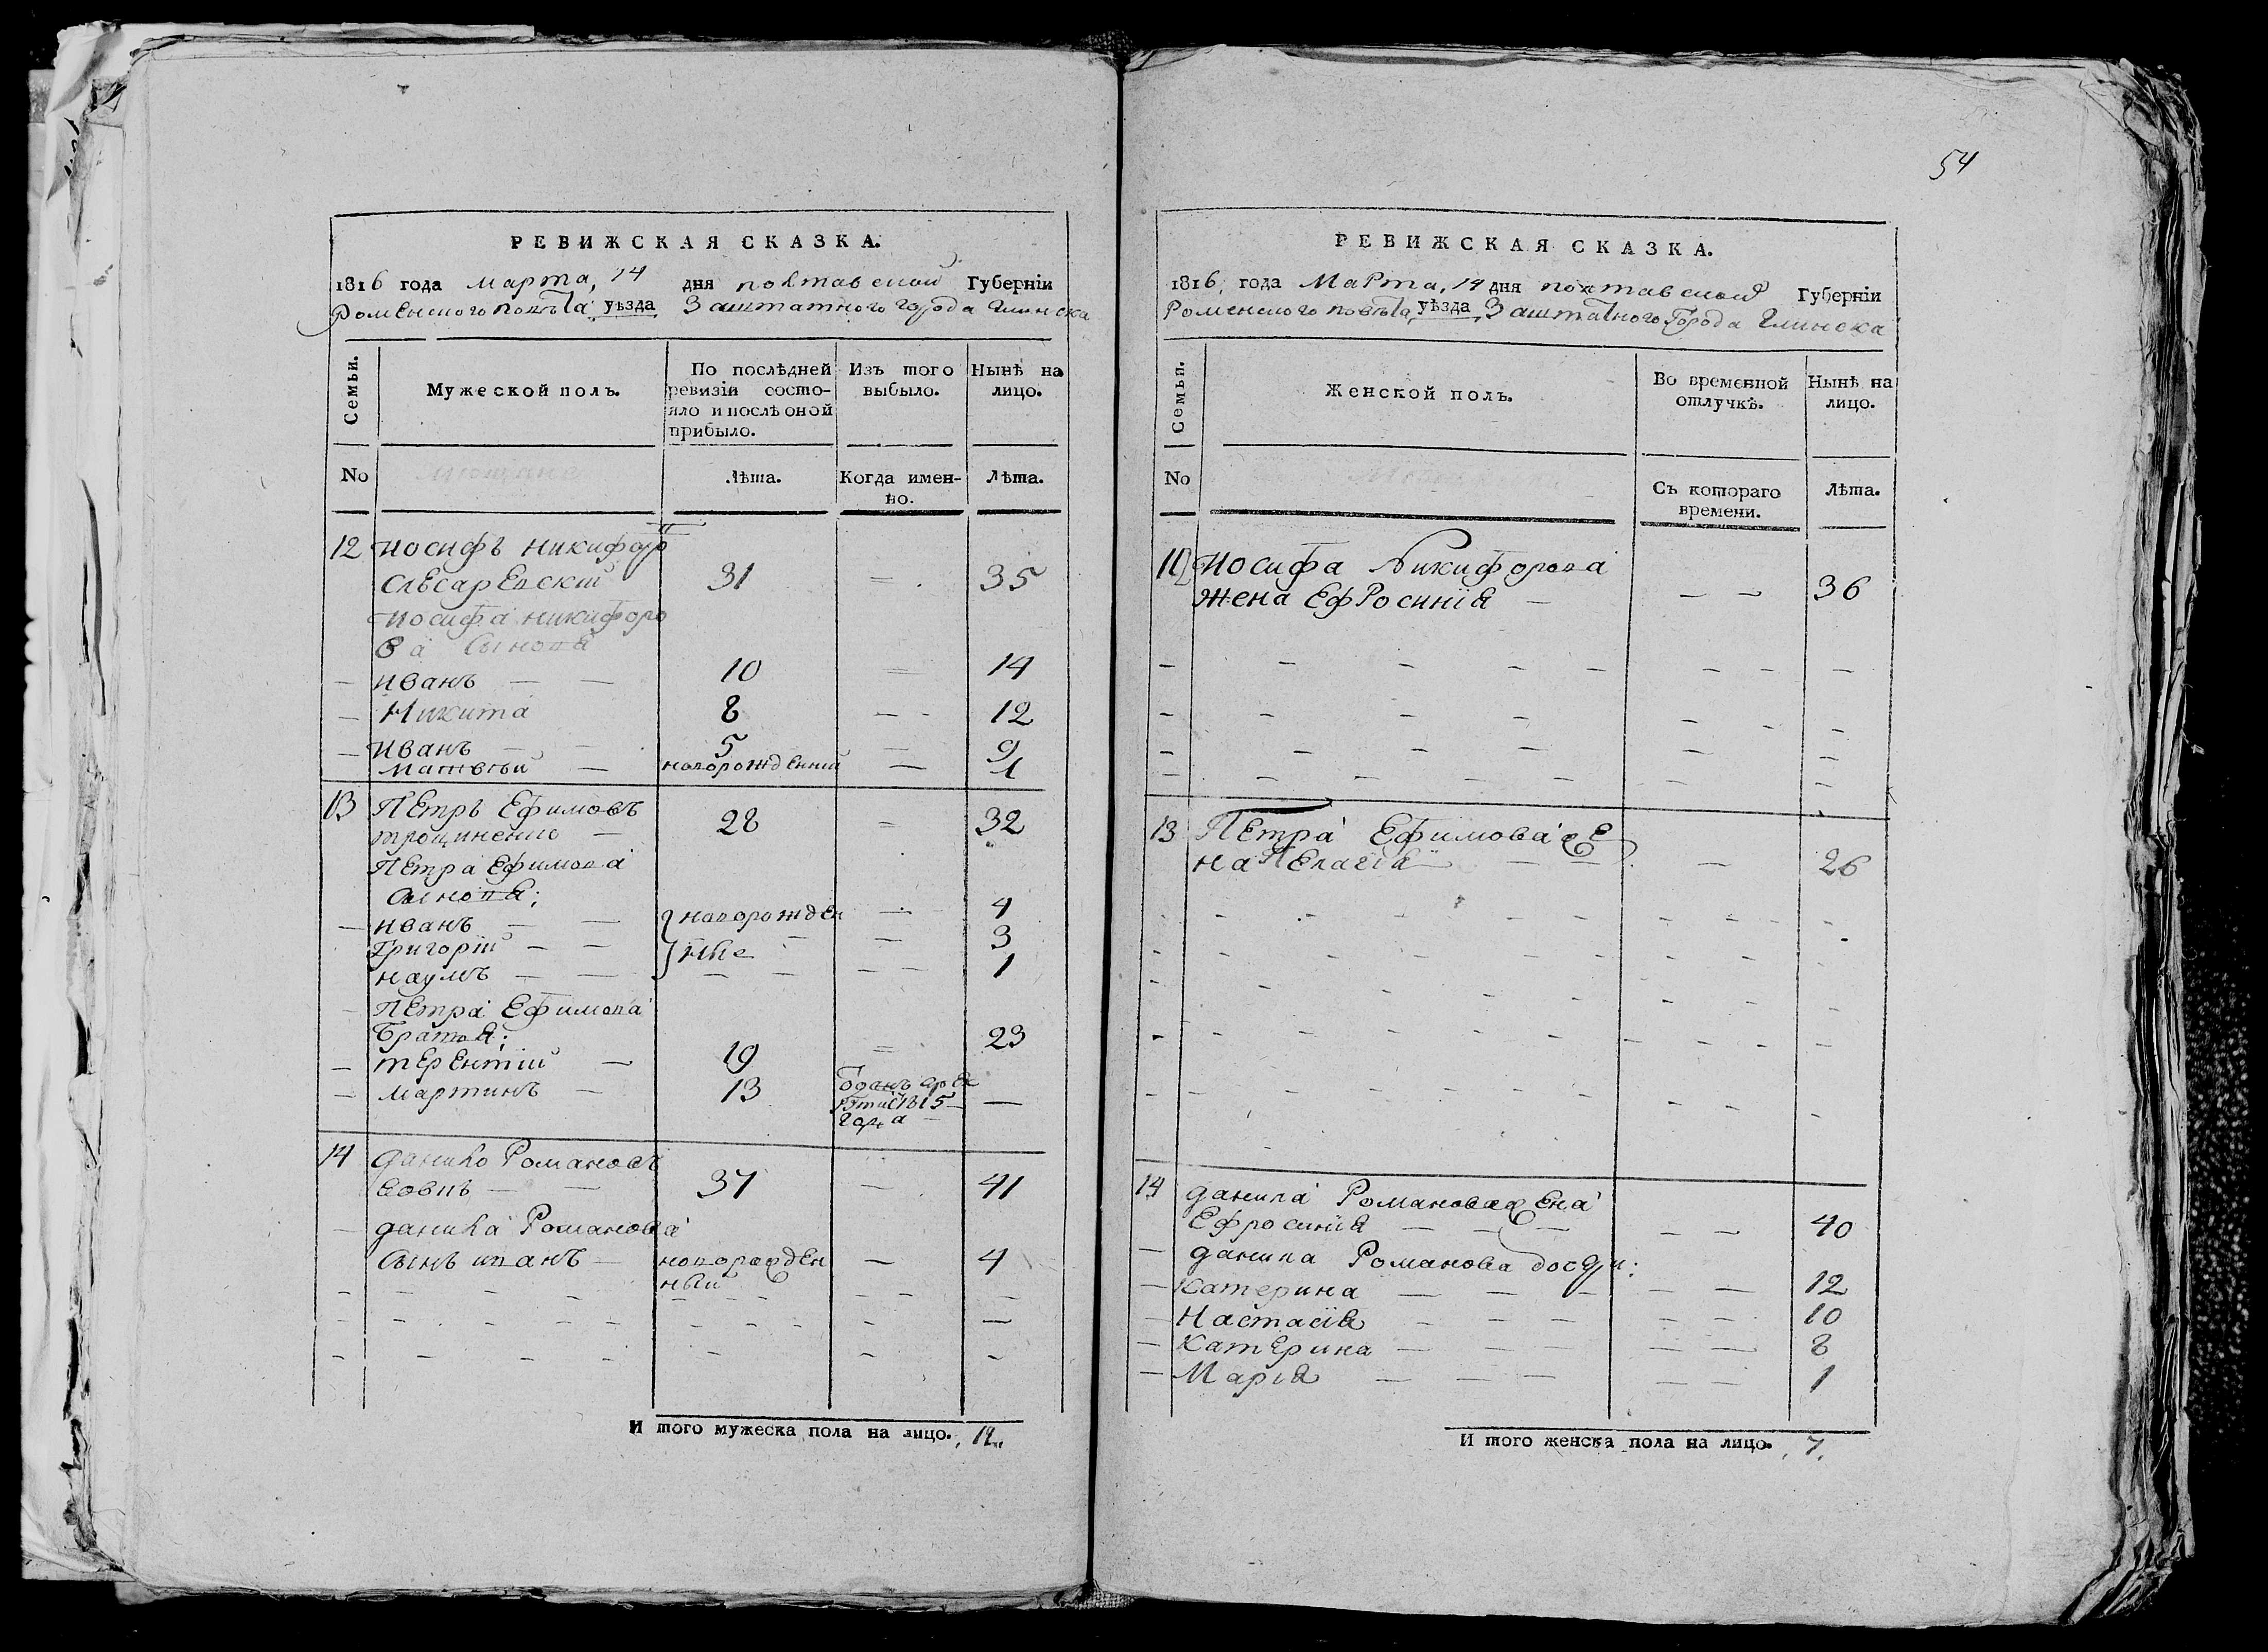 54
РЕВИЖСКАЯ СКАЗКА.
1816 года марта, 14 дня полтавской Губерніи
Роменского повѣта уѣзда Заштатного города Глинска
Семьи.
Мужеской полъ.
По послѣдней ревизіи состояло и послѣ оной прибыло.
Изъ того выбыло.
Нынѣ на лицо.
No
мещане
Лѣта.
Когда именно.
Лѣта.
12 Иосифъ никифор
Слѣсаревскій 31 = 35
Иосифа никифоро
ва сыновя
— иванъ — — 10 = 14
— Никита 8 — 12
— иванъ — — 5 — 9
Матвѣй — новорожденній — 1
13 Петръ Ефимовъ
28 = 32
Петра Ефимова
сыновя;
— иванъ — новорожден — 4
Григорій — — ніе — 3
наумъ — — — — 1
— Петра Ефимова
братя;
— терентій — 19 = 23
— мартинъ — 13 —
1815
года
14 данило Романовъ
37 — 41
— данила Романова
сынъ иванъ — новорожден — 4
ный
И того мужеска пола на лицо. 12.
РЕВИЖСКАЯ СКАЗКА.
1816 года Марта, 14 дня полтавской Губерніи
Роменского повѣта уѣзда Заштатного города Глинска
Семьи.
Женской полъ.
Во временной отлучкѣ.
Нынѣ на лицо.
No
Съ котораго времени.
Лѣта.
12 Иосифа Никифорова
жена Ефросинія — — — 36
13 Петра Ефимова же
на Пелагія — — — 26
14 данила Романова жена
Ефросинія — — — — 40
— данила Романова дочери:
— Катерина — — — — — 12
— Настасія — — — — — 10
— Катерина — — — — — 8
— Марія — — — — — 1
И того женска пола на лицо. 7.